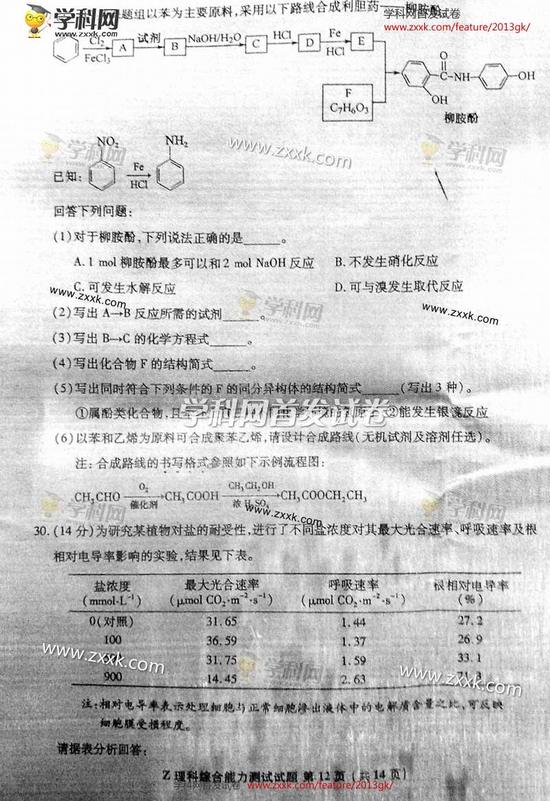 学科网
www.zxxk.com
题组以苯为主要原料,采用以下路线合成利胆药——柳胺酚
学科网首发试卷
www.zxxk.com/feature/2013gk/
Cl₂
FeCl₃
A
试剂
B
NaOH/H₂O
C
HCl
D
Fe
HCl
E
F
C₇H₆O₃
O
C—NH
OH
OH
柳胺酚
已知:
NO₂
Fe
HCl
NH₂
学科网
www.zxxk.com
学科网
回答下列问题:
(1)对于柳胺酚,下列说法正确的是______。
A. 1 mol 柳胺酚最多可以和 2 mol NaOH 反应
B. 不发生硝化反应
C. 可发生水解反应
D. 可与溴发生取代反应
www.zxxk.com
学科网
www.zxxk.com
(2)写出 A→B 反应所需的试剂______。
(3)写出 B→C 的化学方程式______。
(4)写出化合物 F 的结构简式______。
(5)写出同时符合下列条件的 F 的同分异构体的结构简式______(写出 3 种)。
①属酚类化合物,且
②能发生银镜反应
学科网首发试卷
(6)以苯和乙烯为原料可合成聚苯乙烯,请设计合成路线(无机试剂及溶剂任选)。
注:合成路线的书写格式参照如下示例流程图:
CH₃CHO
O₂
催化剂
CH₃COOH
CH₃CH₂OH
浓 H₂SO₄
CH₃COOCH₂CH₃
学科网
www.zxxk.com
学科网
30. (14 分)为研究某植物对盐的耐受性,进行了不同盐浓度对其最大光合速率、呼吸速率及根
相对电导率影响的实验,结果见下表。
盐浓度 最大光合速率 呼吸速率 根相对电导率
(mmol·L⁻¹) (μmol CO₂·m⁻²·s⁻¹) (μmol CO₂·m⁻²·s⁻¹) (%)
0(对照) 31.65 1.44 27.2
100 36.59 1.37 26.9
31.75 1.59 33.1
900 14.45 2.63
www.zxxk.com
学科网
www.zxxk.com
注:相对电导率表示处理细胞与正常细胞渗出液体中的电解质含量之比,可反映
细胞膜受损程度。
请据表分析回答:
Z 理科综合能力测试试题 第 12 页 (共 14 页)
学科网首发试卷 www.zxxk.com/feature/2013gk/